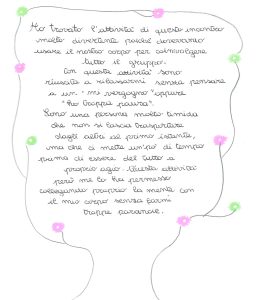 Ho trovato l'attività di questo incontro
molto divertente poiché dovevamo
usare il nostro corpo per coinvolgere
tutto il gruppo.
Con questa attività sono
riuscita a rilassarmi senza pensare
a un "mi vergogno" oppure
"ho troppa paura".
Sono una persona molto timida
che non si lascia trasportare
dagli altri al primo istante,
ma che ci mette un po' di tempo
prima di essere del tutto a
proprio agio. Questa attività
però me lo ha permesso
collegando proprio la mente con
il mio corpo senza farmi
troppe paranoie.